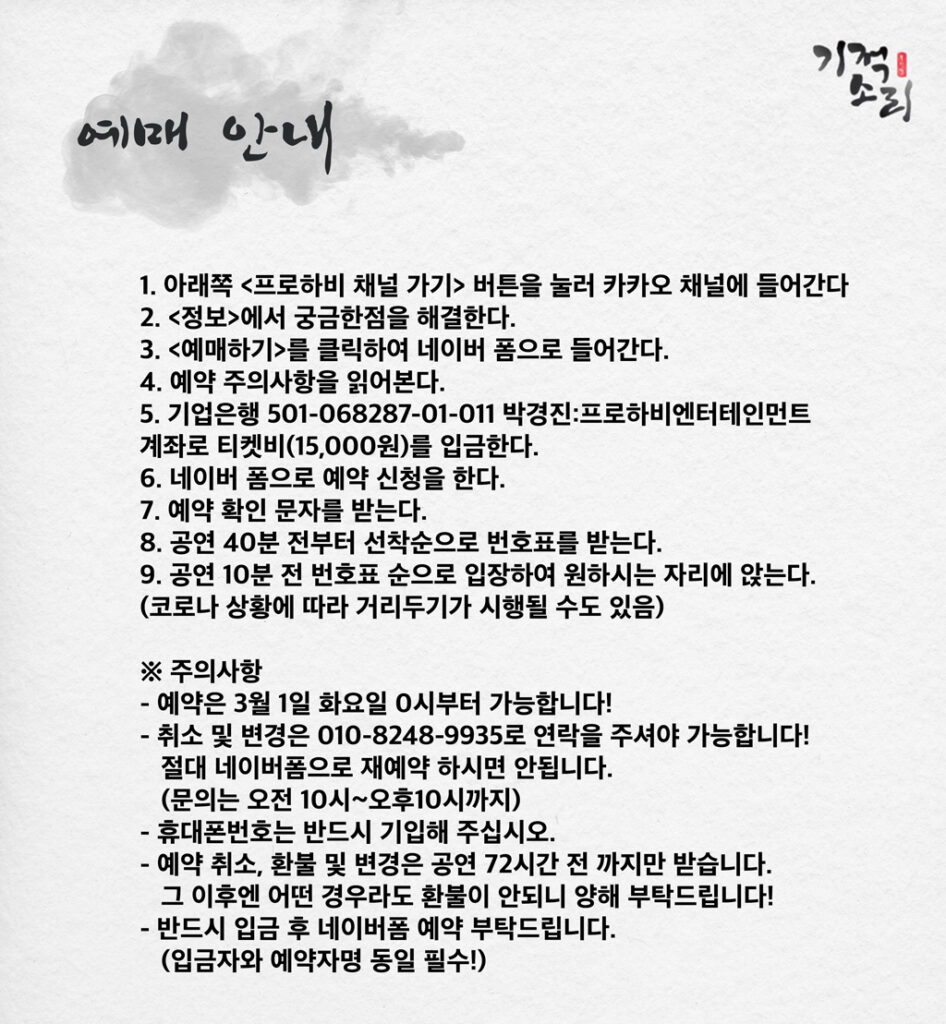 기적
소리
예매 안내
1. 아래쪽 <프로하비 채널 가기> 버튼을 눌러 카카오 채널에 들어간다
2. <정보>에서 궁금한점을 해결한다.
3. <예매하기>를 클릭하여 네이버 폼으로 들어간다.
4. 예약 주의사항을 읽어본다.
5. 기업은행 501-068287-01-011 박경진:프로하비엔터테인먼트
계좌로 티켓비(15,000원)를 입금한다.
6. 네이버 폼으로 예약 신청을 한다.
7. 예약 확인 문자를 받는다.
8. 공연 40분 전부터 선착순으로 번호표를 받는다.
9. 공연 10분 전 번호표 순으로 입장하여 원하시는 자리에 앉는다.
(코로나 상황에 따라 거리두기가 시행될 수도 있음)
※ 주의사항
- 예약은 3월 1일 화요일 0시부터 가능합니다!
- 취소 및 변경은 010-8248-9935로 연락을 주셔야 가능합니다!
절대 네이버폼으로 재예약 하시면 안됩니다.
(문의는 오전 10시~오후10시까지)
- 휴대폰번호는 반드시 기입해 주십시오.
- 예약 취소, 환불 및 변경은 공연 72시간 전 까지만 받습니다.
그 이후엔 어떤 경우라도 환불이 안되니 양해 부탁드립니다!
- 반드시 입금 후 네이버폼 예약 부탁드립니다.
(입금자와 예약자명 동일 필수!)